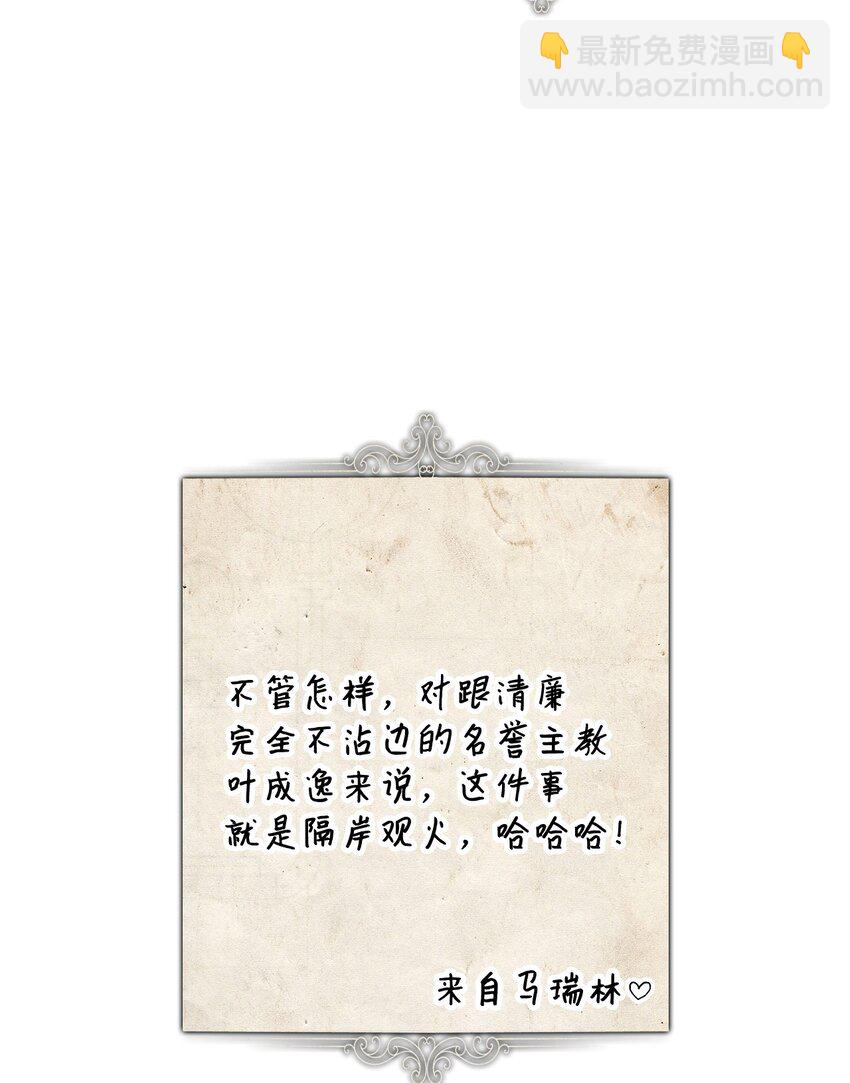 👇最新免费漫画👇
www.baozimh.com
不管怎样，对跟清廉
完全不沾边的名誉主教
叶成逸来说，这件事
就是隔岸观火，哈哈哈！
来自马瑞林♡